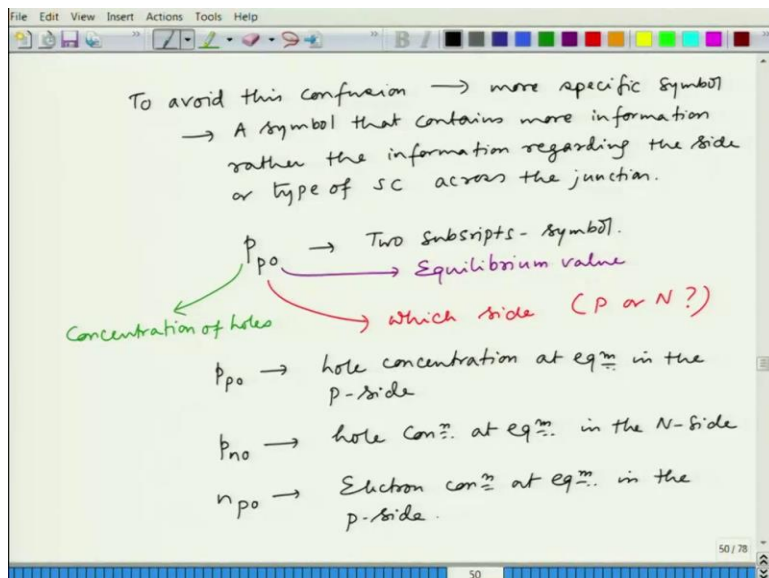 File Edit View Insert Actions Tools Help
B I
To avoid this confusion → more specific symbol
→ A symbol that contains more information
rather the information regarding the side
or type of SC across the junction.
p_po → Two subsripts - symbol.
Equilibrium value
Concentration of holes
which side (P or N?)
p_po → hole concentration at eqm in the
p-side
p_no → hole conn. at eqm. in the N-side
n_po → Electron conn at eqm. in the
p-side.
50 / 78
50